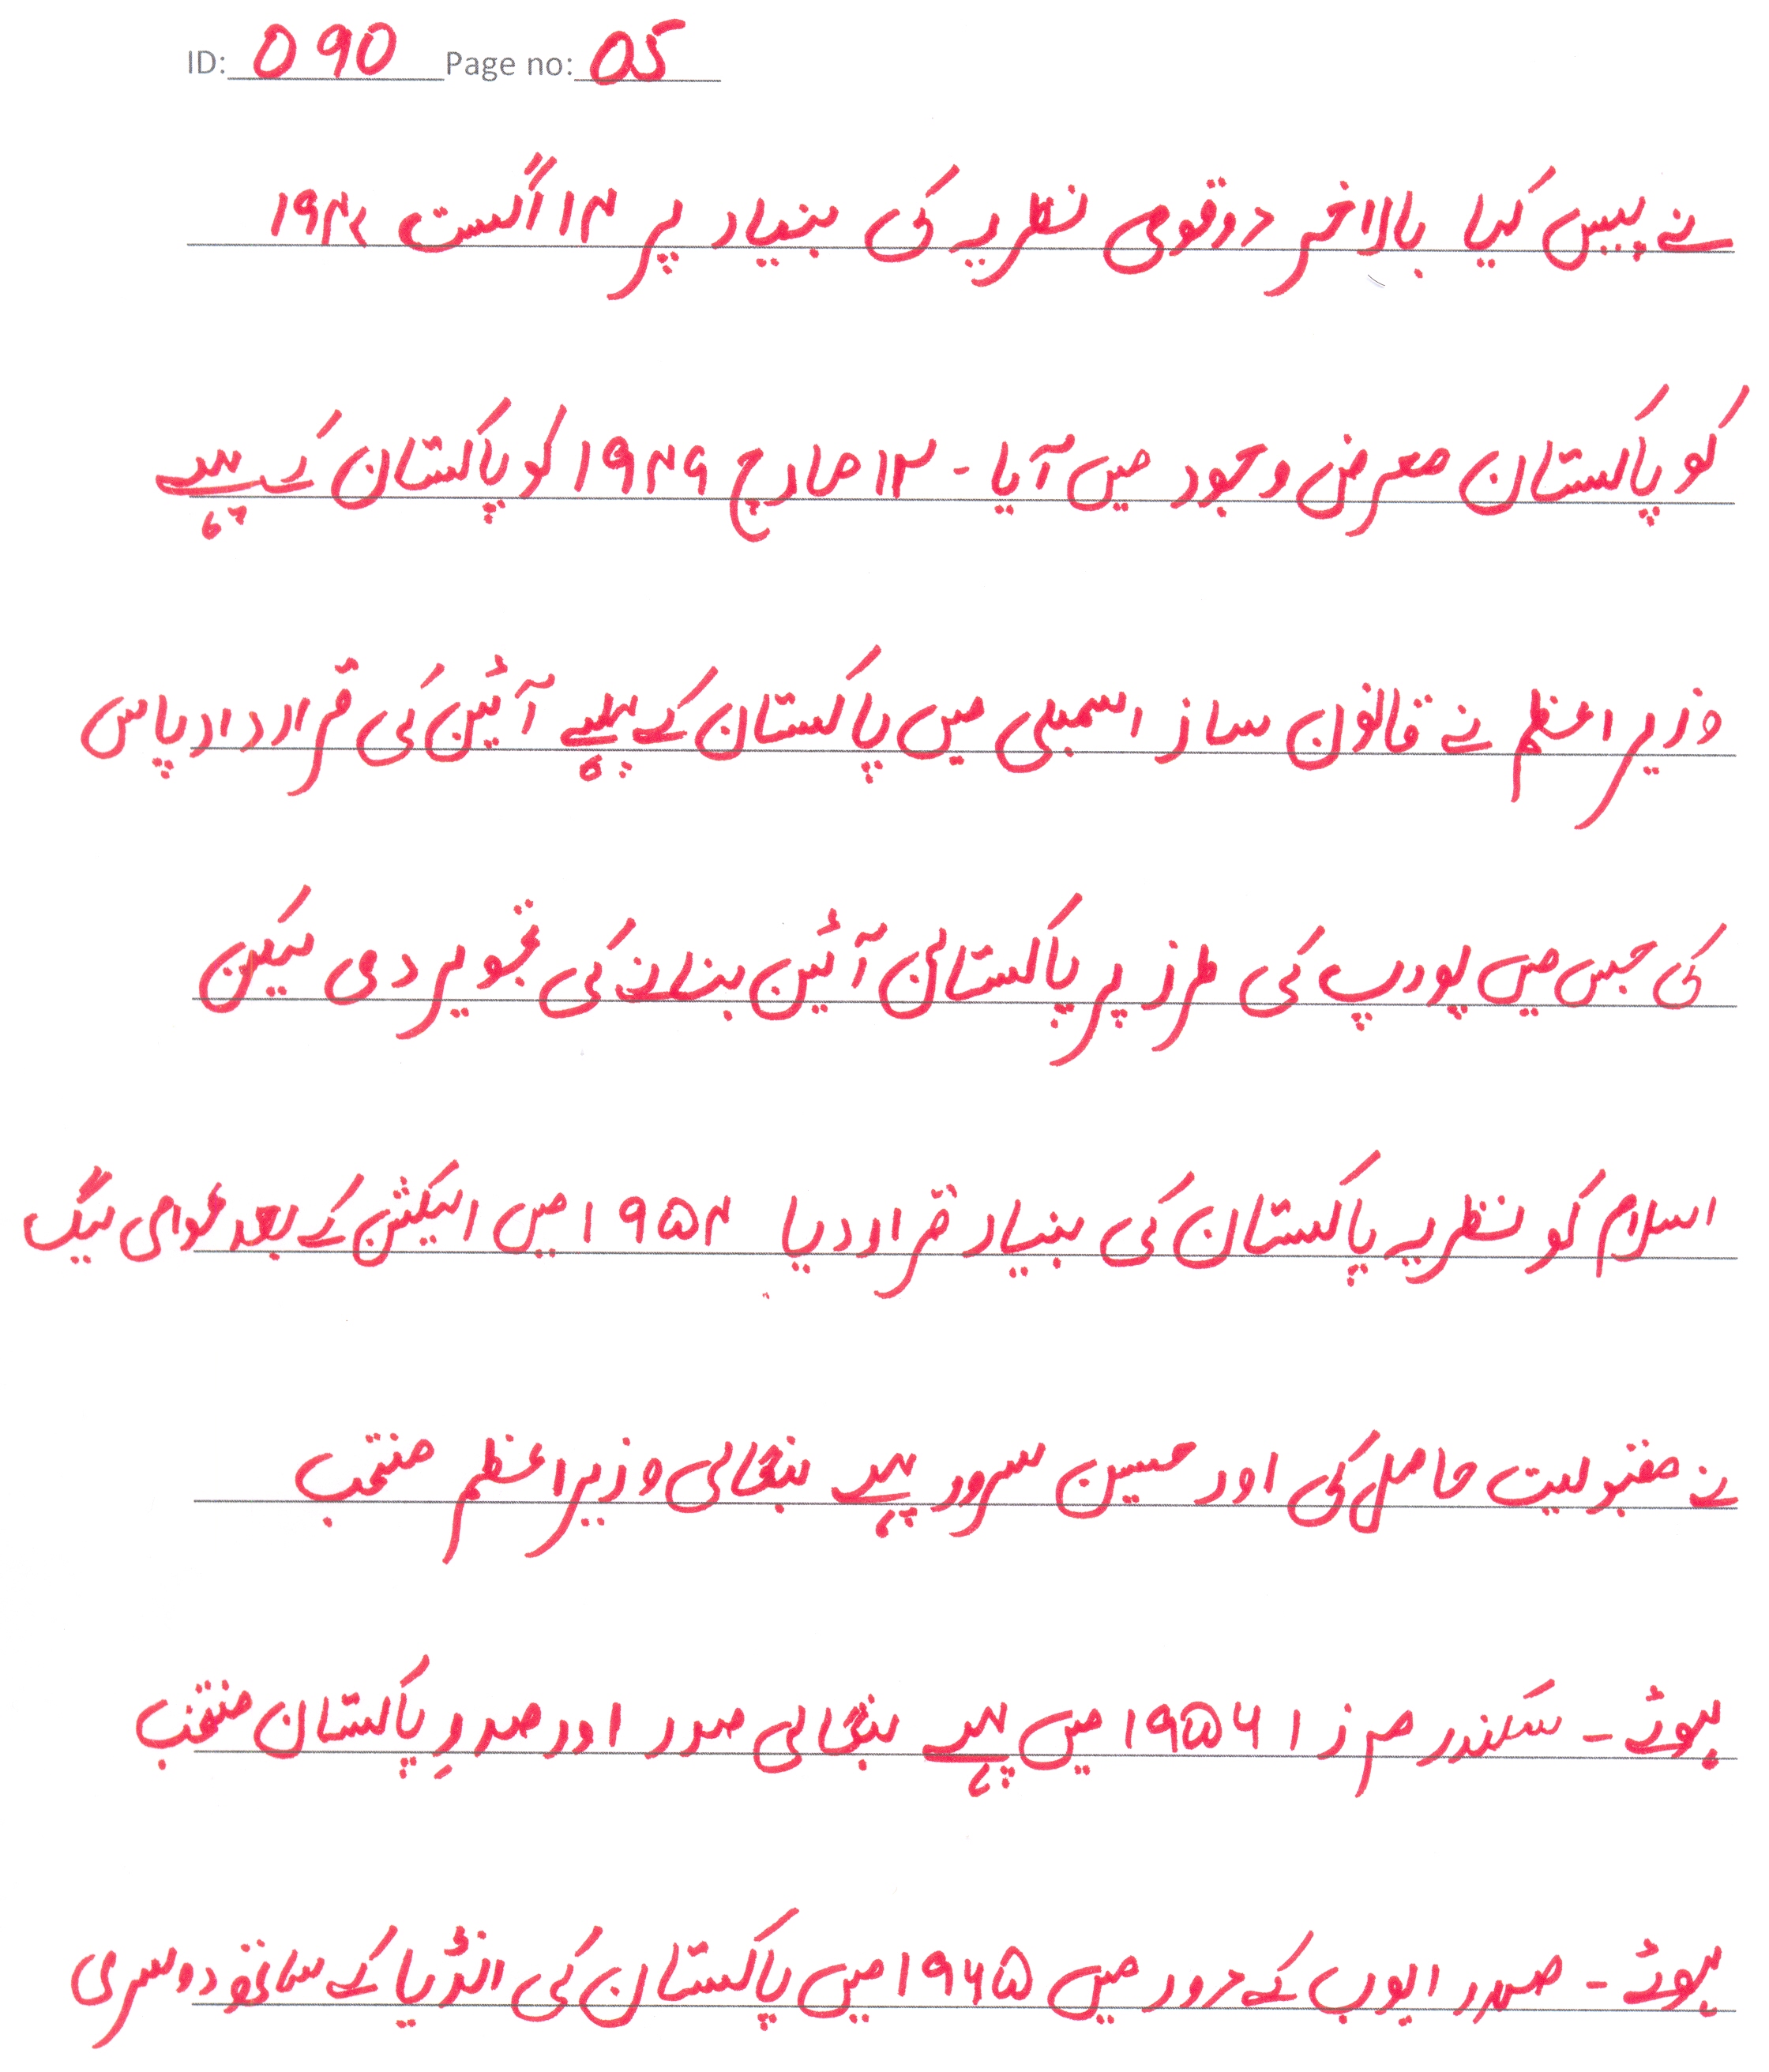 ID: 090 Page no: 05
نے پیش کیا بالاخر دو قومی نظریہ کی بنیاد پر ۱۴ اگست ۱۹۴۷
کو پاکستان معرض وجود میں آیا - ۱۳ مارچ ۱۹۴۹ کو پاکستان کے پہلے
وزیر اعظم نے قانون ساز اسمبلی میں پاکستان کے پہلے آئین کی قرارداد پاس
کی جس میں یورپ کی طرز پر پاکستانی آئین بنانے کی تجویز دی لیکن
اسلام کو نظریہ پاکستان کی بنیاد قرار دیا ۱۹۵۴ میں الیکشن کے بعد عوامی لیگ
نے مقبولیت حاصل کی اور حسین سرور پہلے بنگالی وزیر اعظم منتخب
ہوئے - سکندر مرزا ۱۹۵۶ میں پہلے بنگالی صدر اور صدرِ پاکستان منتخب
ہوئے - صدر ایوب کے دور میں ۱۹۶۵ میں پاکستان کی انڈیا کے ساتھ دوسری